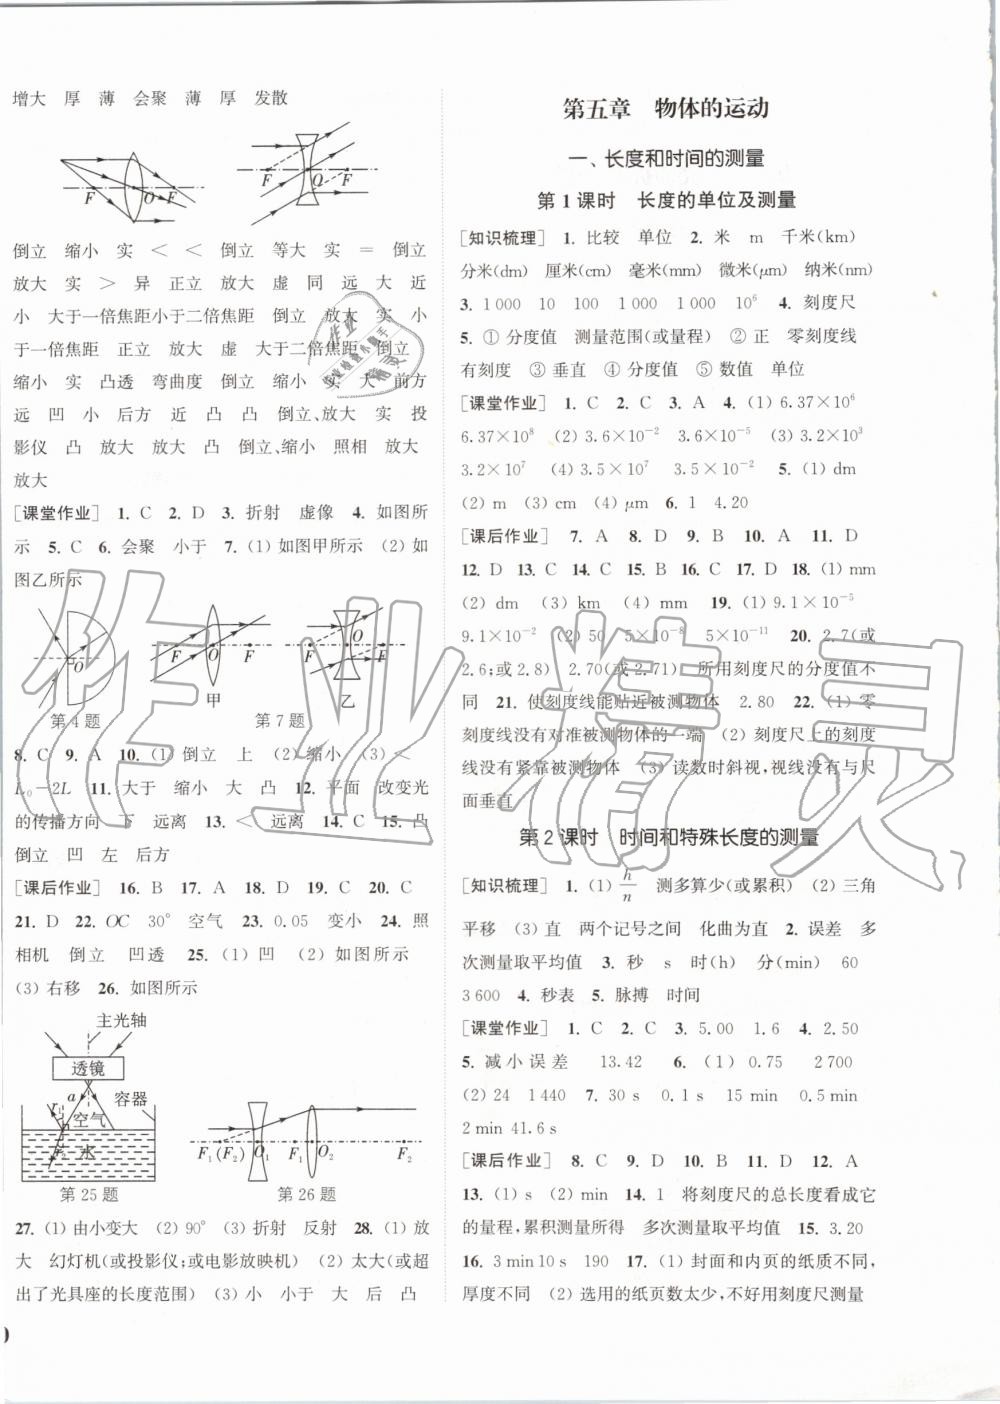 增大　厚　薄　会聚　薄　厚　发散
F　O　F
F　O　F
倒立　缩小　实　＜　＜　倒立　等大　实　＝　倒立
放大　实　＞　异　正立　放大　虚　同　远　大　近
小　大于一倍焦距小于二倍焦距　倒立　放大　实　小
于一倍焦距　正立　放大　虚　大于二倍焦距　倒立
缩小　实　凸透　弯曲度　倒立　缩小　实　大　前方
远　凹　小　后方　近　凸　凸　倒立、放大　实　投
影仪　凸　放大　放大　凸　倒立、缩小　照相　放大
放大
[课堂作业]　1. C　2. D　3. 折射　虚像　4. 如图所
示　5. C　6. 会聚　小于　7. (1) 如图甲所示　(2) 如
图乙所示
O
O　F
O　F
甲　乙
第 4 题　第 7 题
8. C　9. A　10. (1) 倒立　上　(2) 缩小　(3) ＜
L₀－2L　11. 大于　缩小　大　凸　12. 平面　改变光
的传播方向　下　远离　13. ＜　远离　14. C　15. 凸
倒立　凹　左　后方
[课后作业]　16. B　17. A　18. D　19. C　20. C
21. D　22. OC　30°　空气　23. 0.05　变小　24. 照
相机　倒立　凹透　25. (1) 凹　(2) 如图所示
(3) 右移　26. 如图所示
主光轴
透镜
a　容器
空气
水
F₁(F₂)　O₁　F₁　O₂　F₂
第 25 题　第 26 题
27. (1) 由小变大　(2) 90°　(3) 折射　反射　28. (1) 放
大　幻灯机(或投影仪;或电影放映机)　(2) 太大(或超
出了光具座的长度范围)　(3) 小　小于　大　后　凸
第五章　物体的运动
一、长度和时间的测量
第 1 课时　长度的单位及测量
[知识梳理]　1. 比较　单位　2. 米　m　千米(km)
分米(dm)　厘米(cm)　毫米(mm)　微米(μm)　纳米(nm)
3. 1 000　10　100　1 000　1 000　10⁶　4. 刻度尺
5. ① 分度值　测量范围(或量程)　② 正　零刻度线
有刻度　③ 垂直　④ 分度值　⑤ 数值　单位
[课堂作业]　1. C　2. C　3. A　4. (1) 6.37×10⁶
6.37×10⁸　(2) 3.6×10⁻²　3.6×10⁻⁵　(3) 3.2×10³
3.2×10⁷　(4) 3.5×10⁷　3.5×10⁻²　5. (1) dm
(2) m　(3) cm　(4) μm　6. 1　4.20
[课后作业]　7. A　8. D　9. B　10. A　11. D
12. D　13. C　14. C　15. B　16. C　17. D　18. (1) mm
(2) dm　(3) km　(4) mm　19. (1) 9.1×10⁻⁵
9.1×10⁻²　(2) 50　5×10⁻⁸　5×10⁻¹¹　20. 2.7(或
2.6;或 2.8)　2.70(或 2.71)　所用刻度尺的分度值不
同　21. 使刻度线能贴近被测物体　2.80　22. (1) 零
刻度线没有对准被测物体的一端　(2) 刻度尺上的刻度
线没有紧靠被测物体　(3) 读数时斜视,视线没有与尺
面垂直
第 2 课时　时间和特殊长度的测量
[知识梳理]　1. (1) h/n　测多算少(或累积)　(2) 三角
平移　(3) 直　两个记号之间　化曲为直　2. 误差　多
次测量取平均值　3. 秒　s　时(h)　分(min)　60
3 600　4. 秒表　5. 脉搏　时间
[课堂作业]　1. C　2. C　3. 5.00　1.6　4. 2.50
5. 减小误差　13.42　6. (1) 0.75　2 700
(2) 24　1 440　7. 30 s　0.1 s　15 min　0.5 min
2 min 41.6 s
[课后作业]　8. C　9. D　10. B　11. D　12. A
13. (1) s　(2) min　14. 1　将刻度尺的总长度看成它
的量程,累积测量所得　多次测量取平均值　15. 3.20
16. 3 min 10 s　190　17. (1) 封面和内页的纸质不同,
厚度不同　(2) 选用的纸页数太少,不好用刻度尺测量
作业精灵